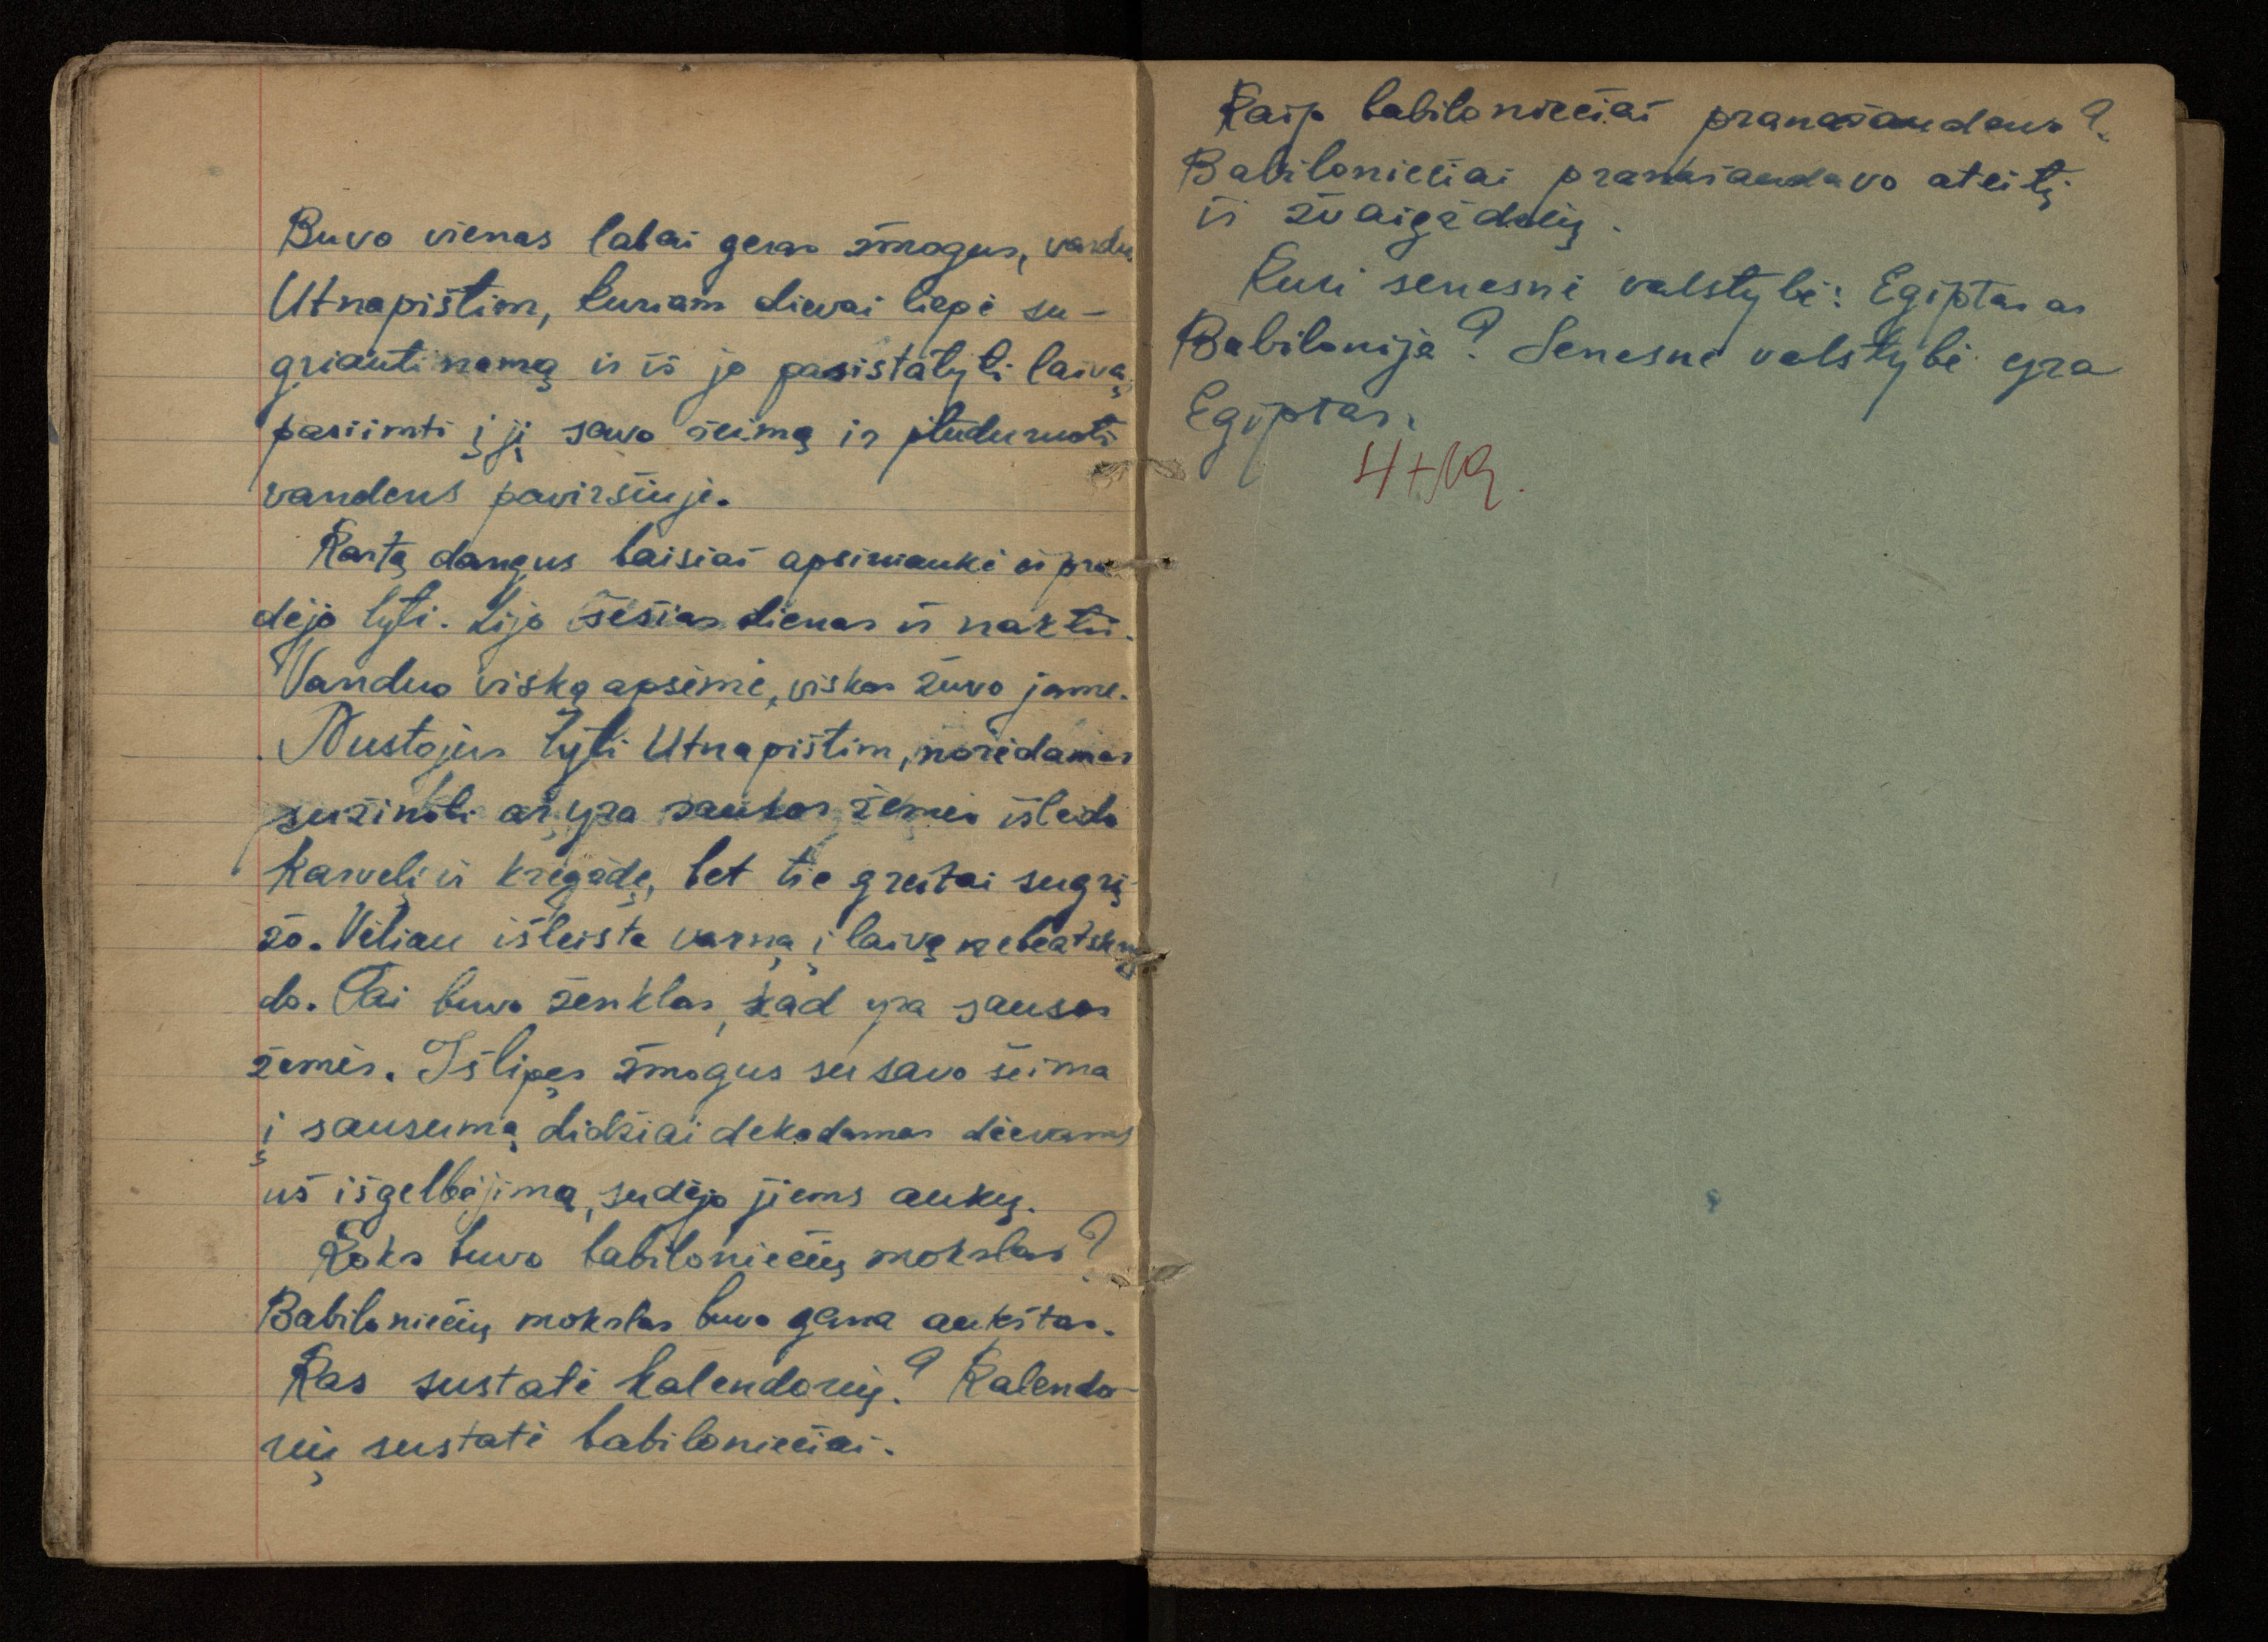 Buvo vienas labai geras žmogus, vardu
Utnapištim, kuriam dievai liepė su-
griauti namą ir iš jo pasistatyti laivą,
pasiimti į jį savo šeimą ir plūduruoti
vandens paviršiuje.
Kartą dangus baisiai apsiniaukė ir pra-
dėjo lyti. Lijo šešias dienas ir naktis.
Vanduo viską apsėmė, viskas žuvo jame.
Nustojus lyti Utnapištim, norėdamas
sužinoti ar yra sausos žemės išleido
karvelį ir kregždę, bet tie greitai sugrį-
žo. Vėliau išleista varna į laivą nebeatskri-
do. Tai buvo ženklas, kad yra sausos
žemės. Išlipęs žmogus su savo šeima
į sausumą didžiai dėkodamas dievams
už išgelbėjimą, sudėjo jiems aukų.
Koks buvo babiloniečių mokslas?
Babiloniečių mokslas buvo gana aukštas.
Kas sustatė kalendorių? Kalendo-
rių sustatė babiloniečiai.
Kaip babiloniečiai pranašaudavo?
Babiloniečiai pranašaudavo ateitį
iš žvaigždelių.
Kuri senesnė valstybė: Egiptas ar
Babilonija? Senesnė valstybė yra
Egiptas.
4+